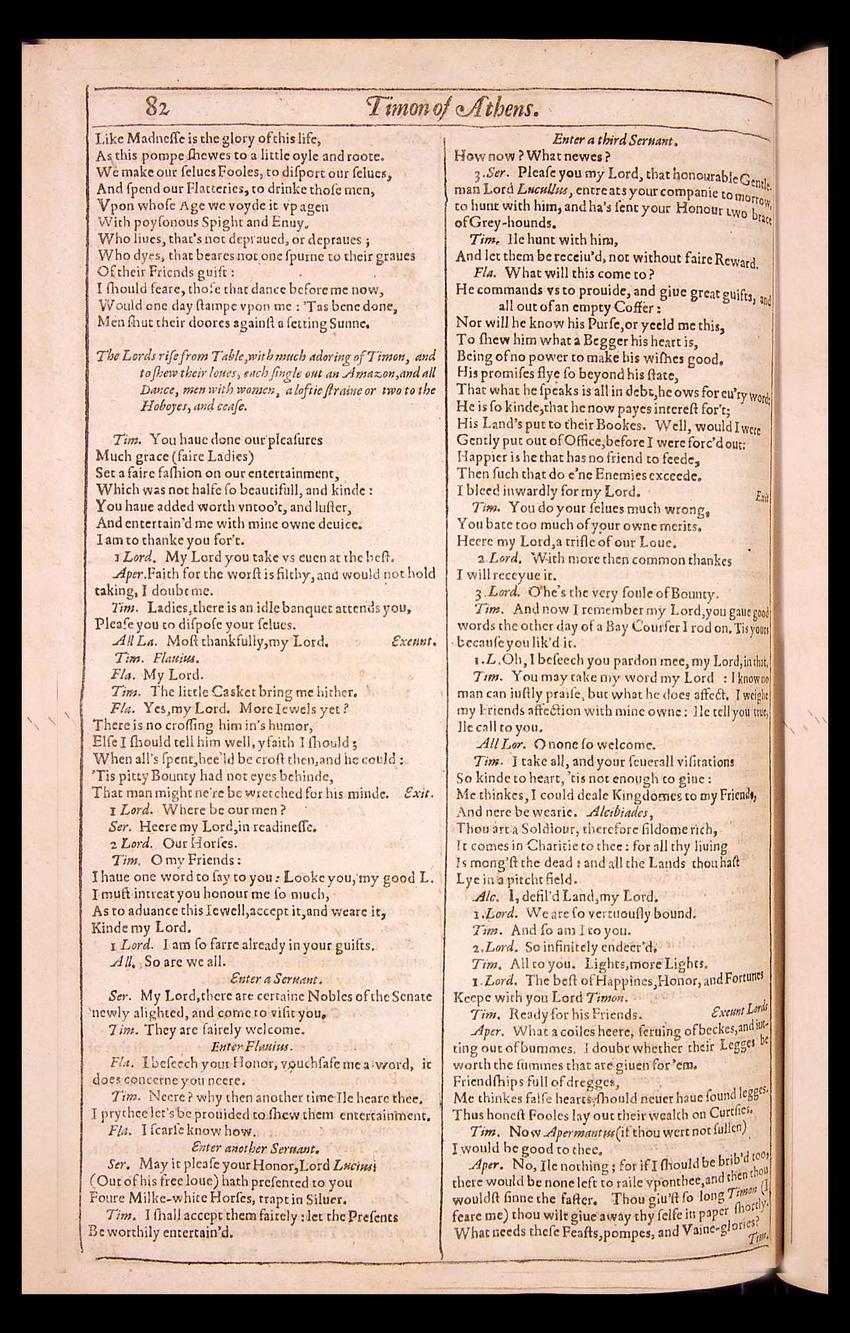 82
Timon of Athens.
Like Madneſſe is the glory of this life,
As this pompe ſhewes to a little oyle and roote.
We make our ſelues Fooles, to diſport our ſelues,
And ſpend our Flatteries, to drinke thoſe men,
Vpon whoſe Age we voyde it vp agen
With poyſonous Spight and Enuy.
Who liues, that's not depraued, or depraues;
Who dyes, that beares not one ſpurne to their graues
Of their Friends guift:
I ſhould feare, thoſe that dance before me now,
Would one day ſtampe vpon me: 'Tas bene done,
Men ſhut their doores againſt a ſetting Sunne.
The Lords riſe from Table, with much adoring of Timon, and
to ſhew their loues, each ſingle out an Amazon, and all
Dance, men with women, a loftie ſtraine or two to the
Hoboyes, and ceaſe.
Tim. You haue done our pleaſures
Much grace (faire Ladies)
Set a faire faſhion on our entertainment,
Which was not halfe ſo beautifull, and kinde:
You haue added worth vntoo't, and luſter,
And entertain'd me with mine owne deuice.
I am to thanke you for't.
1 Lord. My Lord you take vs euen at the beſt.
Aper. Faith for the worſt is filthy, and would not hold
taking, I doubt me.
Tim. Ladies, there is an idle banquet attends you,
Pleaſe you to diſpoſe your ſelues.
All La. Moſt thankfully, my Lord. Exeunt.
Tim. Flauius.
Fla. My Lord.
Tim. The little Casket bring me hither.
Fla. Yes, my Lord. More Iewels yet?
There is no croſſing him in's humor,
Elſe I ſhould tell him well, yfaith I ſhould;
When all's ſpent, hee'ld be croſt then, and he could:
'Tis pitty Bounty had not eyes behinde,
That man might ne're be wretched for his minde. Exit.
1 Lord. Where be our men?
Ser. Heere my Lord, in readineſſe.
2 Lord. Our Horſes.
Tim. O my Friends:
I haue one word to ſay to you: Looke you, my good L.
I muſt intreat you honour me ſo much,
As to aduance this Iewell, accept it, and weare it,
Kinde my Lord.
1 Lord. I am ſo farre already in your guifts.
All. So are we all.
Enter a Seruant.
Ser. My Lord, there are certaine Nobles of the Senate
newly alighted, and come to viſit you.
Tim. They are fairely welcome.
Enter Flauius.
Fla. I beſeech your Honor, vouchſafe me a word, it
does concerne you neere.
Tim. Neere? why then another time Ile heare thee.
I prythee let's be prouided to ſhew them entertainment.
Fla. I ſcarſe know how.
Enter another Seruant.
Ser. May it pleaſe your Honor, Lord Lucius
(Out of his free loue) hath preſented to you
Foure Milke-white Horſes, trapt in Siluer.
Tim. I ſhall accept them fairely: let the Preſents
Be worthily entertain'd.
Enter a third Seruant.
How now? What newes?
3. Ser. Pleaſe you my Lord, that honourable Gentle-
man Lord Lucullus, entreats your companie to morrow,
to hunt with him, and ha's ſent your Honour two brace
of Grey-hounds.
Tim. Ile hunt with him,
And let them be receiu'd, not without faire Reward.
Fla. What will this come to?
He commands vs to prouide, and giue great guifts, and
all out of an empty Coffer:
Nor will he know his Purſe, or yeeld me this,
To ſhew him what a Begger his heart is,
Being of no power to make his wiſhes good.
His promiſes flye ſo beyond his ſtate,
That what he ſpeaks is all in debt, he ows for eu'ry word:
He is ſo kinde, that he now payes intereſt for't;
His Land's put to their Bookes. Well, would I were
Gently put out of Office, before I were forc'd out:
Happier is he that has no friend to feede,
Then ſuch that do e'ne Enemies exceede.
I bleed inwardly for my Lord. Exit
Tim. You do your ſelues much wrong,
You bate too much of your owne merits.
Heere my Lord, a trifle of our Loue.
2. Lord. With more then common thankes
I will receyue it.
3. Lord. O he's the very ſoule of Bounty.
Tim. And now I remember my Lord, you gaue good
words the other day of a Bay Courſer I rod on. Tis yours
becauſe you lik'd it.
1. L. Oh, I beſeech you pardon mee, my Lord, in that.
Tim. You may take my word my Lord : I know no
man can iuſtly praiſe, but what he does affect. I weighe
my Friends affection with mine owne: Ile tell you true,
Ile call to you.
All Lor. O none ſo welcome.
Tim. I take all, and your ſeuerall viſitations
So kinde to heart, 'tis not enough to giue:
Me thinkes, I could deale Kingdomes to my Friends,
And nere be wearie. Alcibiades,
Thou art a Soldiour, therefore ſildome rich,
It comes in Charitie to thee: for all thy liuing
Is mong'ſt the dead: and all the Lands thou haſt
Lye in a pitcht field.
Alc. I, defil'd Land, my Lord.
1. Lord. We are ſo vertuouſly bound.
Tim. And ſo am I to you.
2. Lord. So infinitely endeer'd.
Tim. All to you. Lights, more Lights.
1. Lord. The beſt of Happines, Honor, and Fortunes
Keepe with you Lord Timon.
Tim. Ready for his Friends. Exeunt Lords
Aper. What a coiles heere, ſeruing of beckes, and iut-
ting out of bummes. I doubt whether their Legges be
worth the ſummes that are giuen for 'em.
Friendſhips full of dregges,
Me thinkes falſe hearts, ſhould neuer haue ſound legges.
Thus honeſt Fooles lay out their wealth on Curtſies.
Tim. Now Apermantus (if thou wert not ſullen)
I would be good to thee.
Aper. No, Ile nothing; for if I ſhould be brib'd too,
there would be none left to raile vpon thee, and then thou
wouldſt ſinne the faſter. Thou giu'ſt ſo long Timon (I
feare me) thou wilt giue away thy ſelfe in paper ſhortly.
What needs theſe Feaſts, pompes, and Vaine-glories?
Tim.